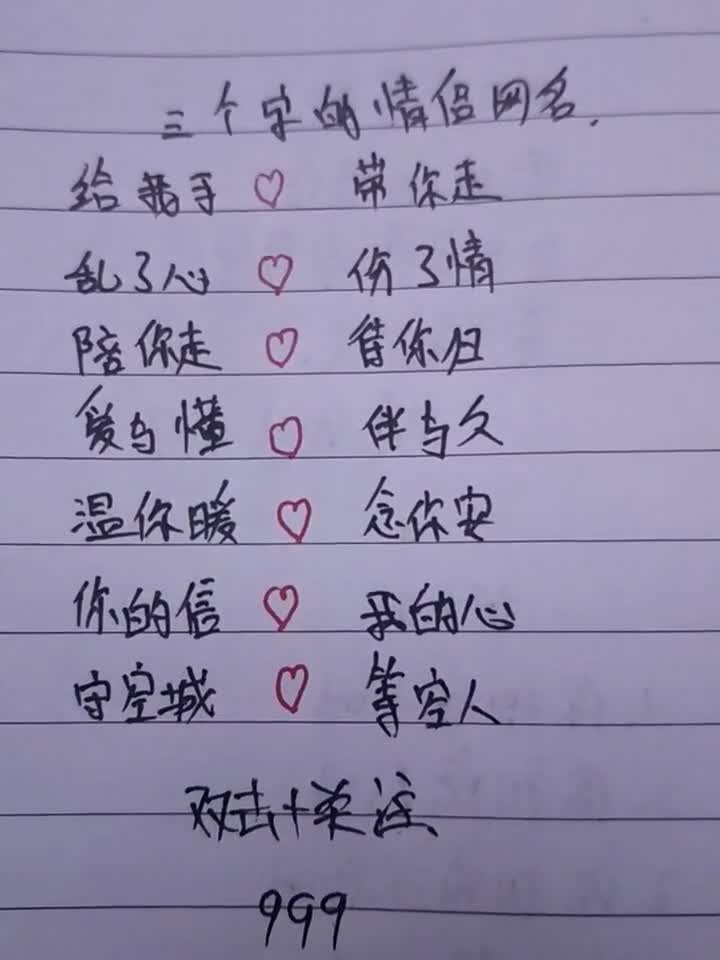 三个字的情侣网名.
给我手♡带你走
乱了心♡伤了情
陪你走♡等你归
爱与懂♡伴与久
温你暖♡念你安
你的信♡我的心
守空城♡等空人
双击+关注
999